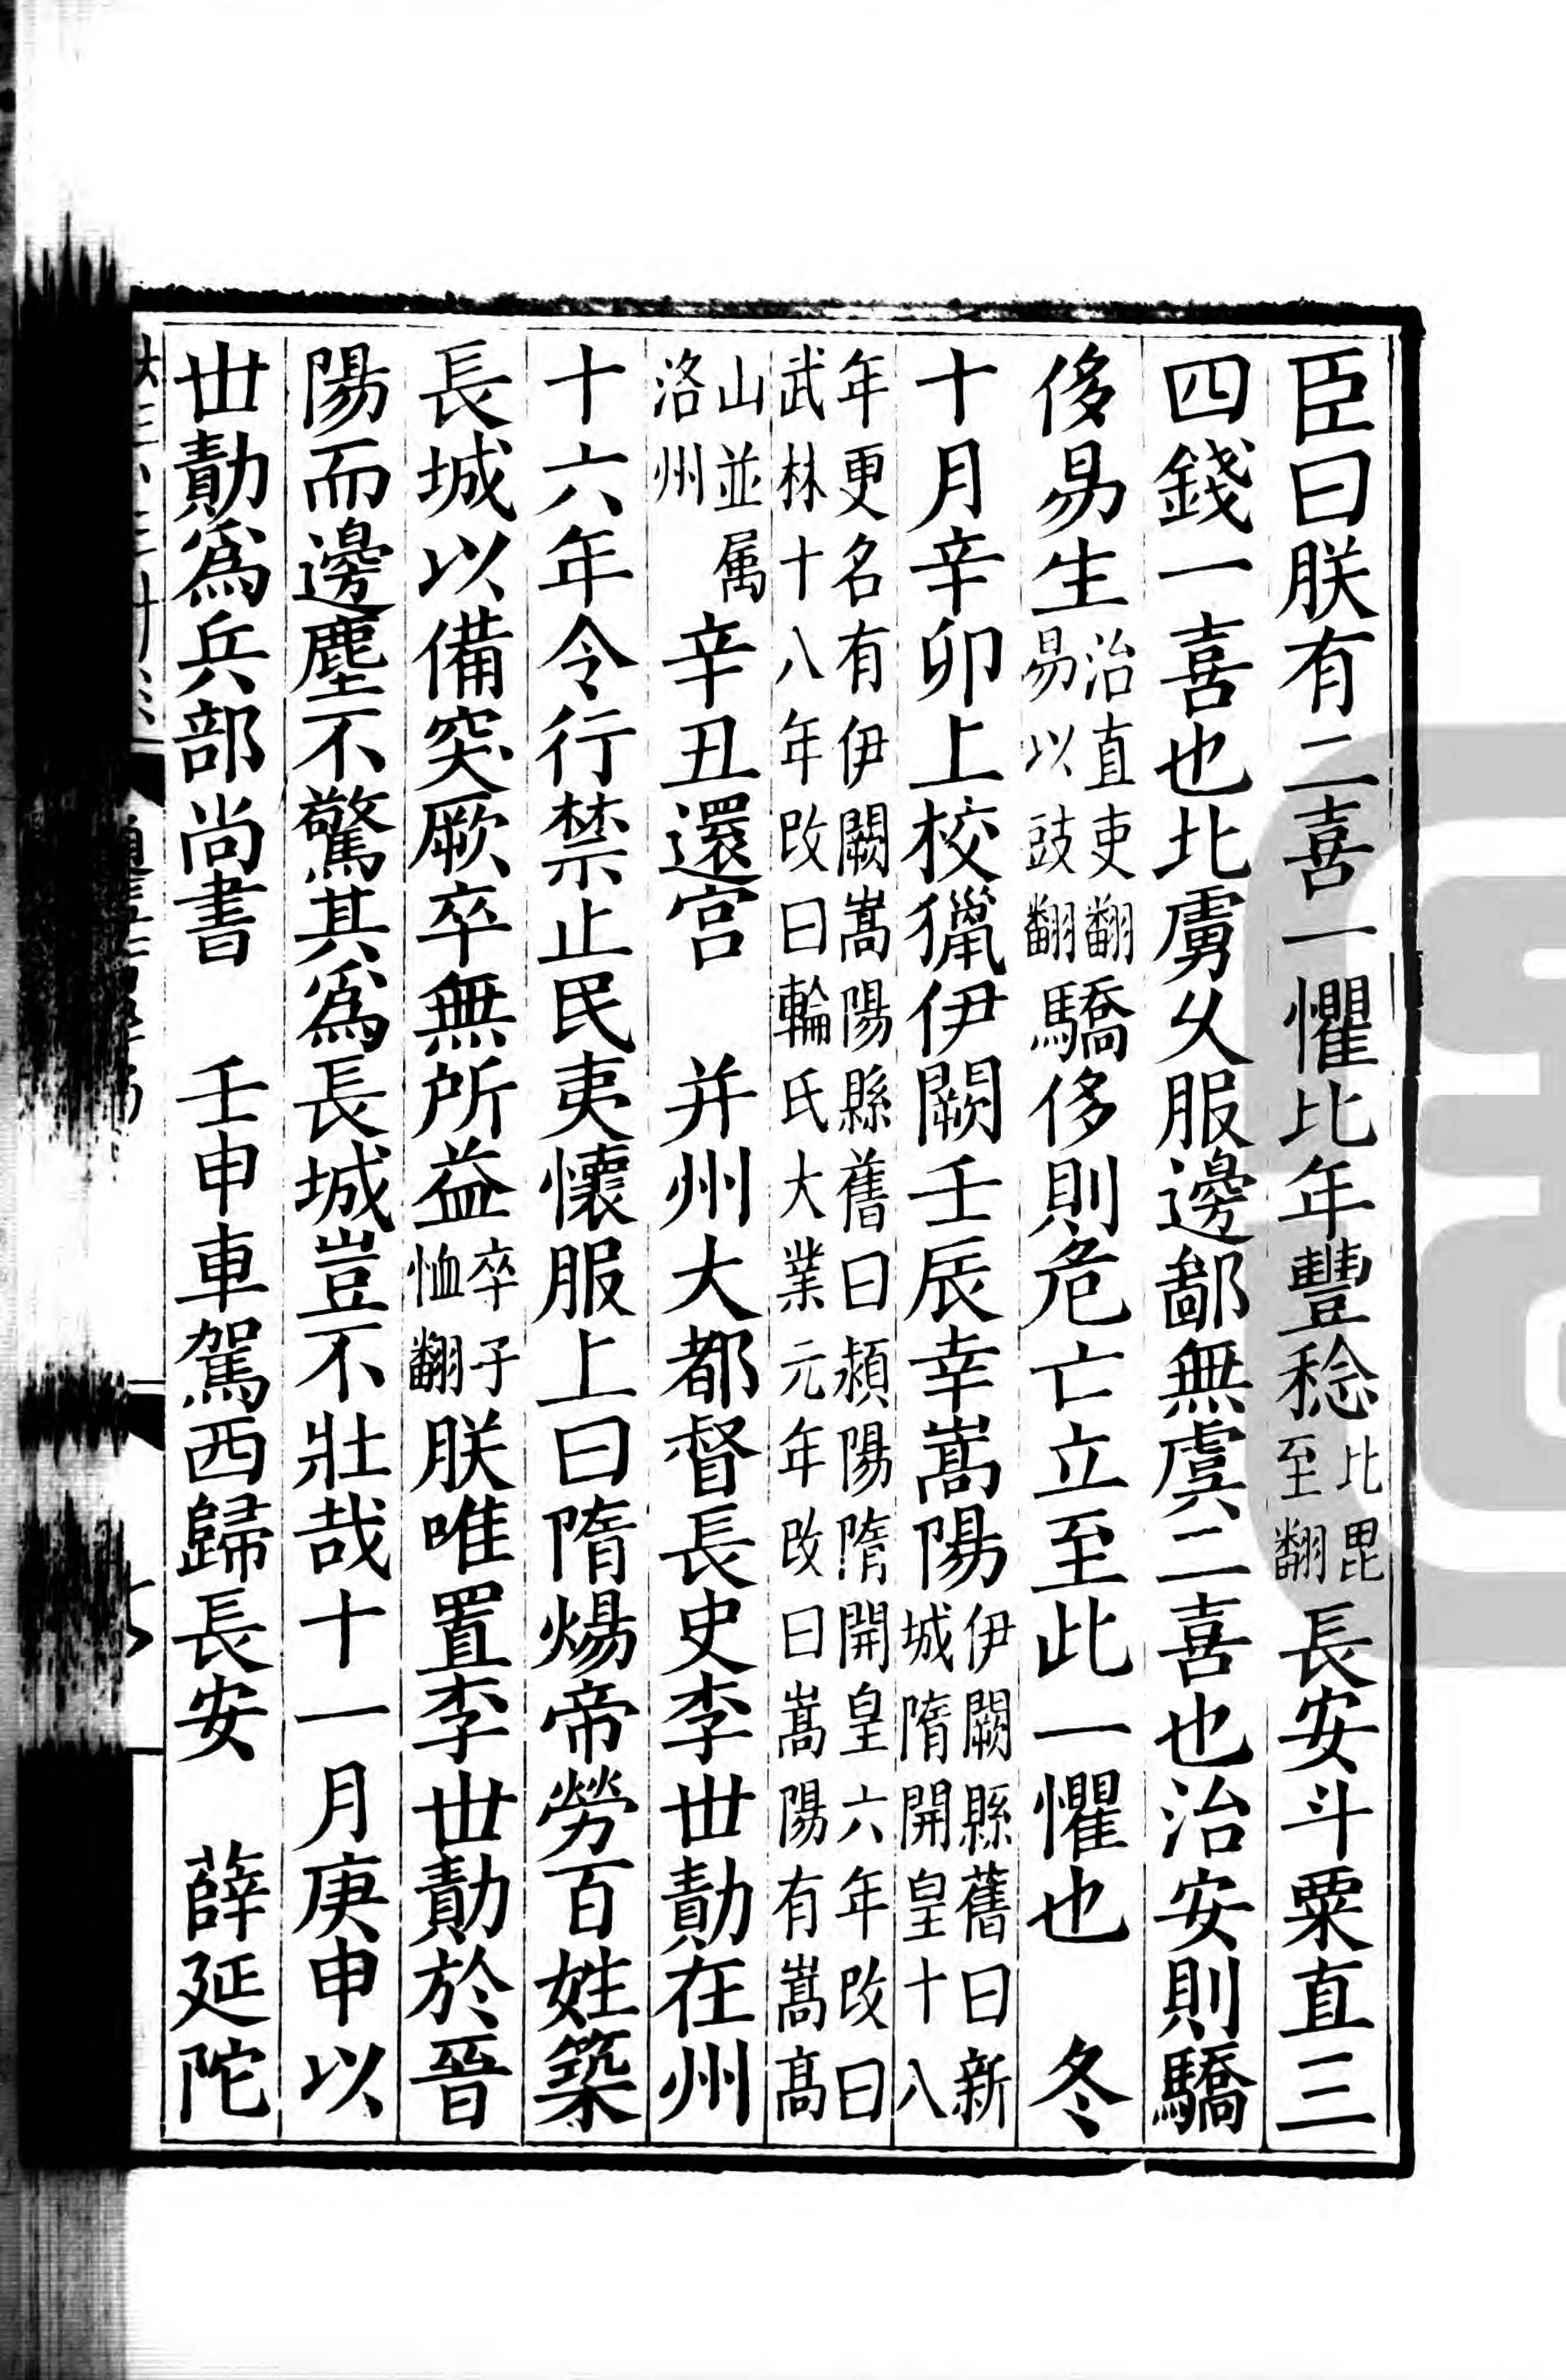 臣曰朕有二喜一懼比年豐稔比毘至翻長安斗粟直三
四錢一喜也北虜久服邊鄙無虞二喜也治安則驕
侈易生治直吏翻易以豉翻驕侈則危亡立至此一懼也　冬
十月辛卯上校獵伊闕壬辰幸嵩陽伊闕縣舊曰新城隋開皇十八
年更名有伊闕嵩陽縣舊曰潁陽隋開皇六年改曰武林十八年改曰輪氏大業元年改曰嵩陽有嵩高
山並属洛州辛丑還宮　并州大都督長史李世勣在州
十六年令行禁止民夷懷服上曰隋煬帝勞百姓築
長城以備突厥卒無所益卒子恤翻朕唯置李世勣於晉
陽而邊塵不驚其爲長城豈不壯哉十一月庚申以
世勣爲兵部尚書　壬申車駕西歸長安　薛延陀